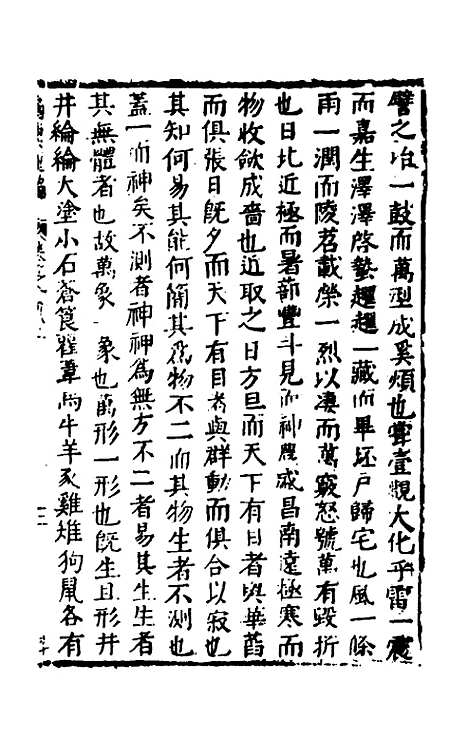 譬之冶一鼓而萬型成奚煩也嘗壹覩大化乎雷一震
而嘉生澤澤啓蟄趯趯一藏而畢坯戶歸宅也風一條
雨一潤而陵苕載榮一烈以凄而萬竅怒號萬有毀折
也日北近極而暑節豐斗見而神農盛昌南遠極寒而
物收斂成嗇也近取之日方旦而天下有目者與華酋
而俱張日旣夕而天下有目者與群動而俱合以寂也
其知何易其能何簡其爲物不二而其物生者不測也
蓋一而神矣不測者神神爲無方不二者易其生生者
其無體者也故萬象一象也萬形一形也旣生且形井
井綸綸大塗小石蒼筤萑葦馬牛羊豕雞雉狗鼠各有